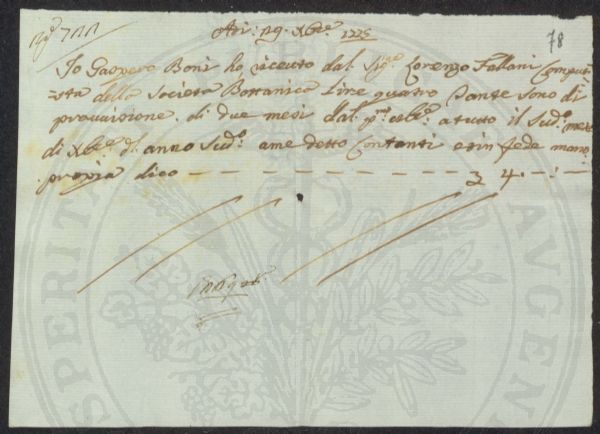 Adi: 29. Xbre. 1775
78
Io Gaspero Boni ho riceuto dal Sigre. Lorenzo Fallani Compu-
-sta della Società Bottanica Lire quattro Tante sono di
prouuisione di due mesi dal pmo. 9bre. a tutto il Sudo. mese
di Xbre. do. anno Sudo. ame detto Contanti e in fede mano
propria dico — — — — — — £ 4. — : —
PROSPERITATI
AVGENDAE